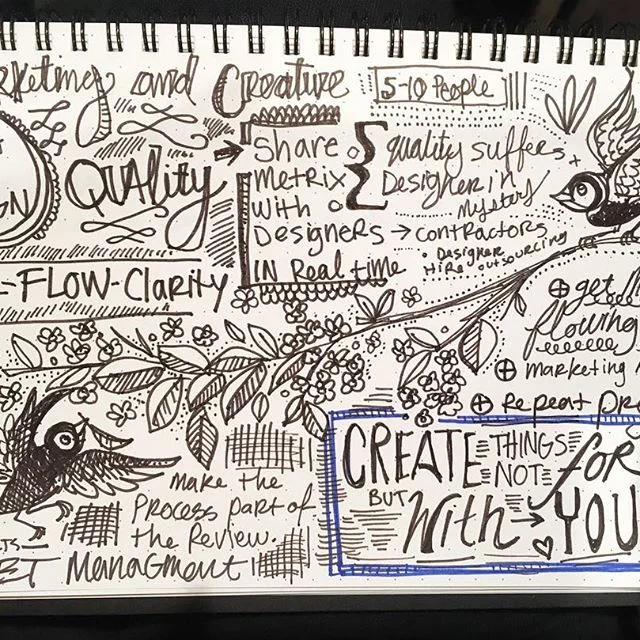 rketing and Creative
5-10 People
QUAlity
Share
metrix
with
Designers
IN Real time
quality suffers
Designer in
mystery
→ contractors
• Designer
Hire outsourcing
GN
=FLOW-Clarity
⊕ get
flowing
⊕ marketing
⊕ repeat pro
make the
Process part of
the Review.
Managment
CREATE THINGS
NOT for
BUT With → YOU